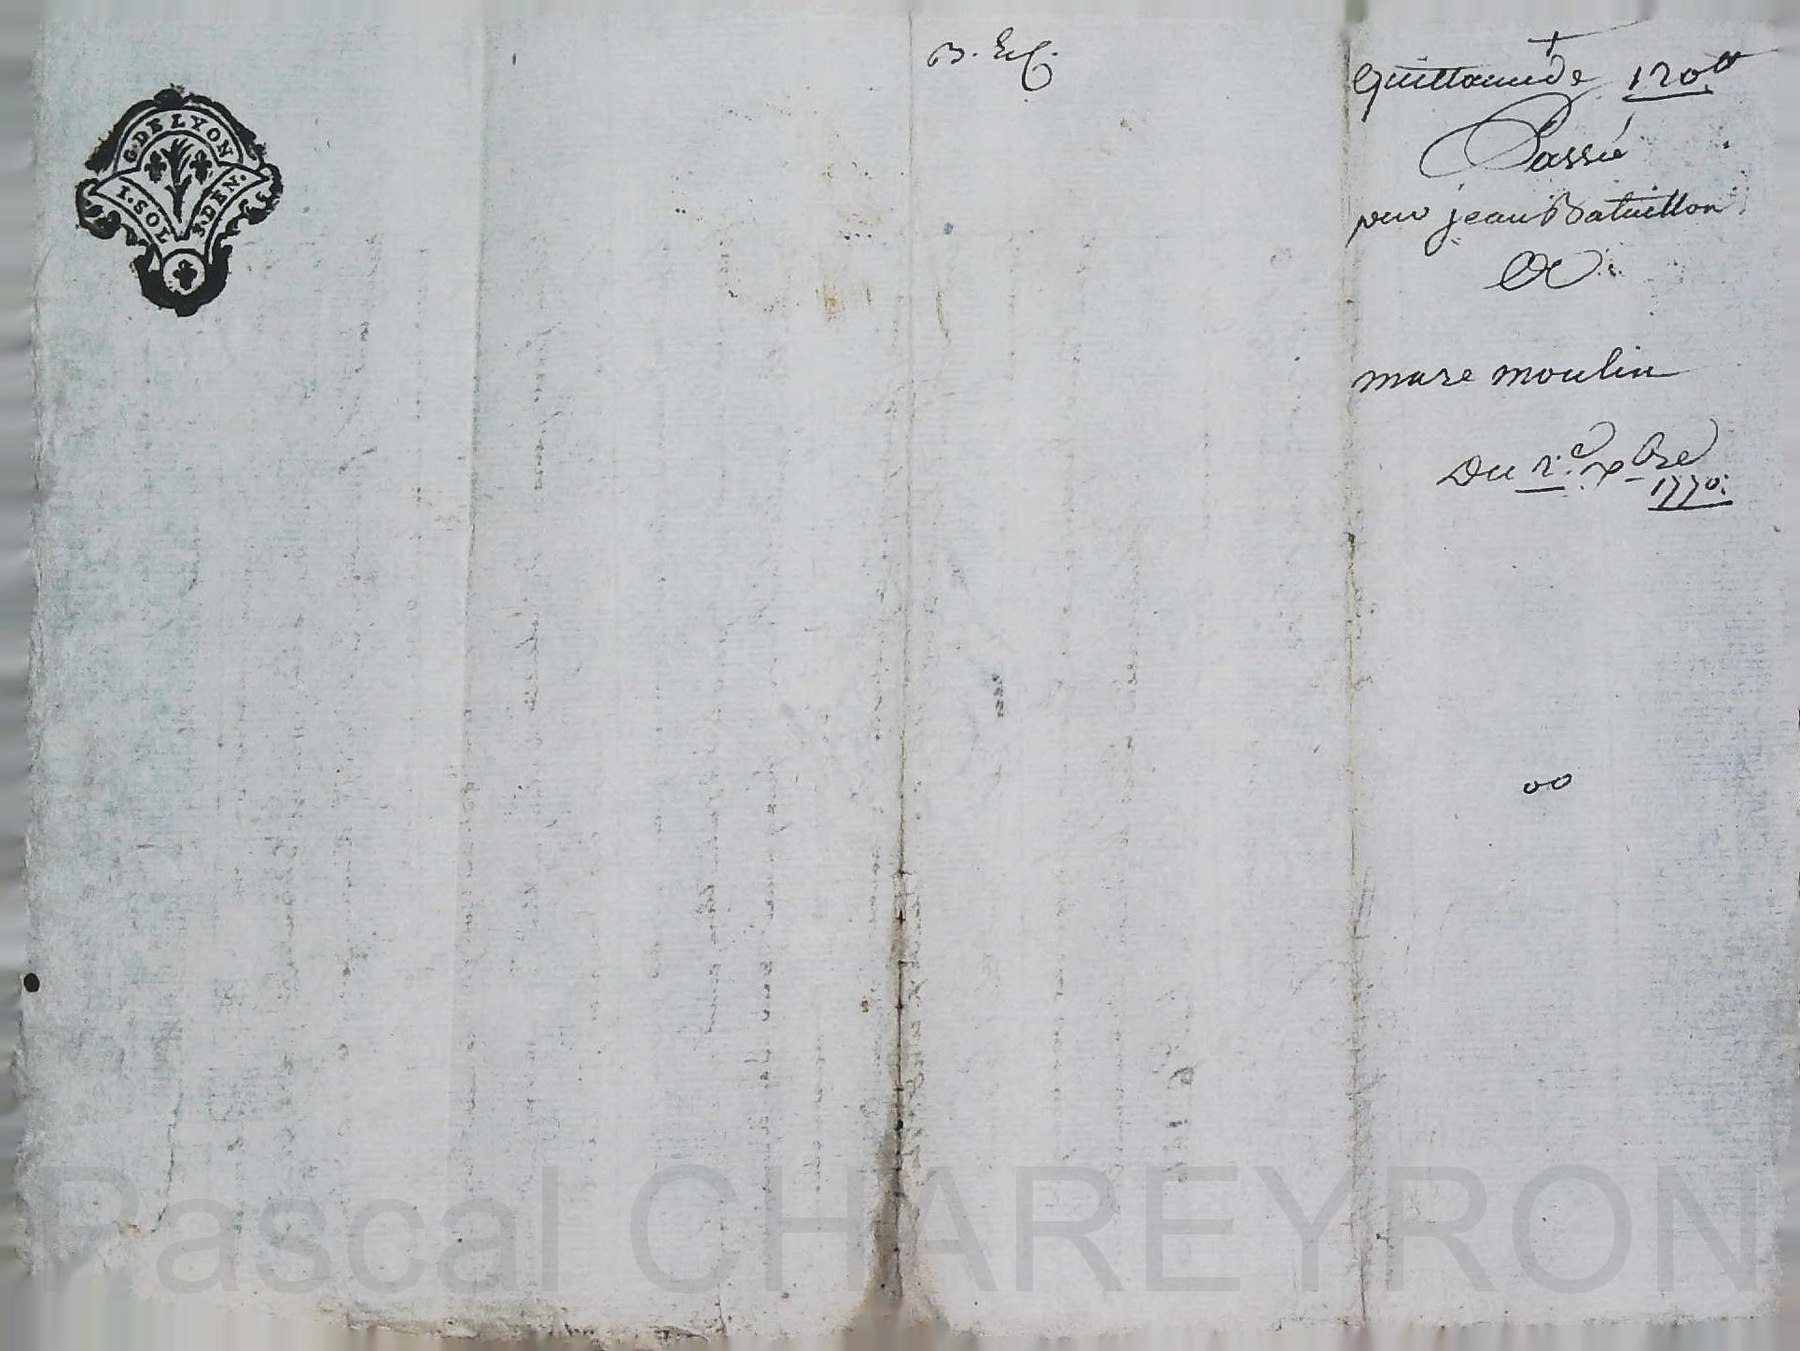 G. DE LYON
I. SOL 3. DEN.
Quittance de 120tt
Passé
par jean Bataillon
A
marc moulin
Du 2.e xbre
1770.
oo
Pascal CHAREYRON